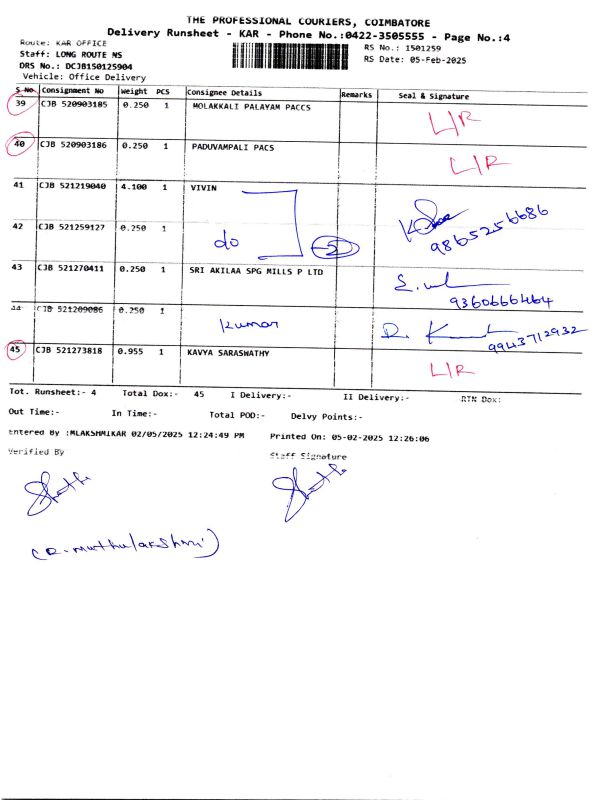 THE PROFESSIONAL COURIERS, COIMBATORE
Delivery Runsheet - KAR - Phone No.:0422-3505555 - Page No.:4
Route: KAR OFFICE
RS No.: 1501259
Staff: LONG ROUTE NS
RS Date: 05-Feb-2025
DRS No.: DCJB150125904
Vehicle: Office Delivery
S No Consignment No Weight PCS Consignee Details Remarks Seal & Signature
39 CJB 520903185 0.250 1 MOLAKKALI PALAYAM PACCS L/R
40 CJB 520903186 0.250 1 PADUVAMPALI PACS L/R
41 CJB 521219040 4.100 1 VIVIN
42 CJB 521259127 0.250 1 do 2 9865256686
43 CJB 521270411 0.250 1 SRI AKILAA SPG MILLS P LTD
9360666464
44 CJB 521209086 0.250 1 Kumar R. Kumar 9943712932
45 CJB 521273818 0.955 1 KAVYA SARASWATHY L/R
Tot. Runsheet:- 4 Total Dox:- 45 I Delivery:- II Delivery:- RTN Dox:
Out Time:- In Time:- Total POD:- Delvy Points:-
Entered By :MLAKSHMIKAR 02/05/2025 12:24:49 PM Printed On: 05-02-2025 12:26:06
Verified By Staff Signature
(R. Muthulakshmi)